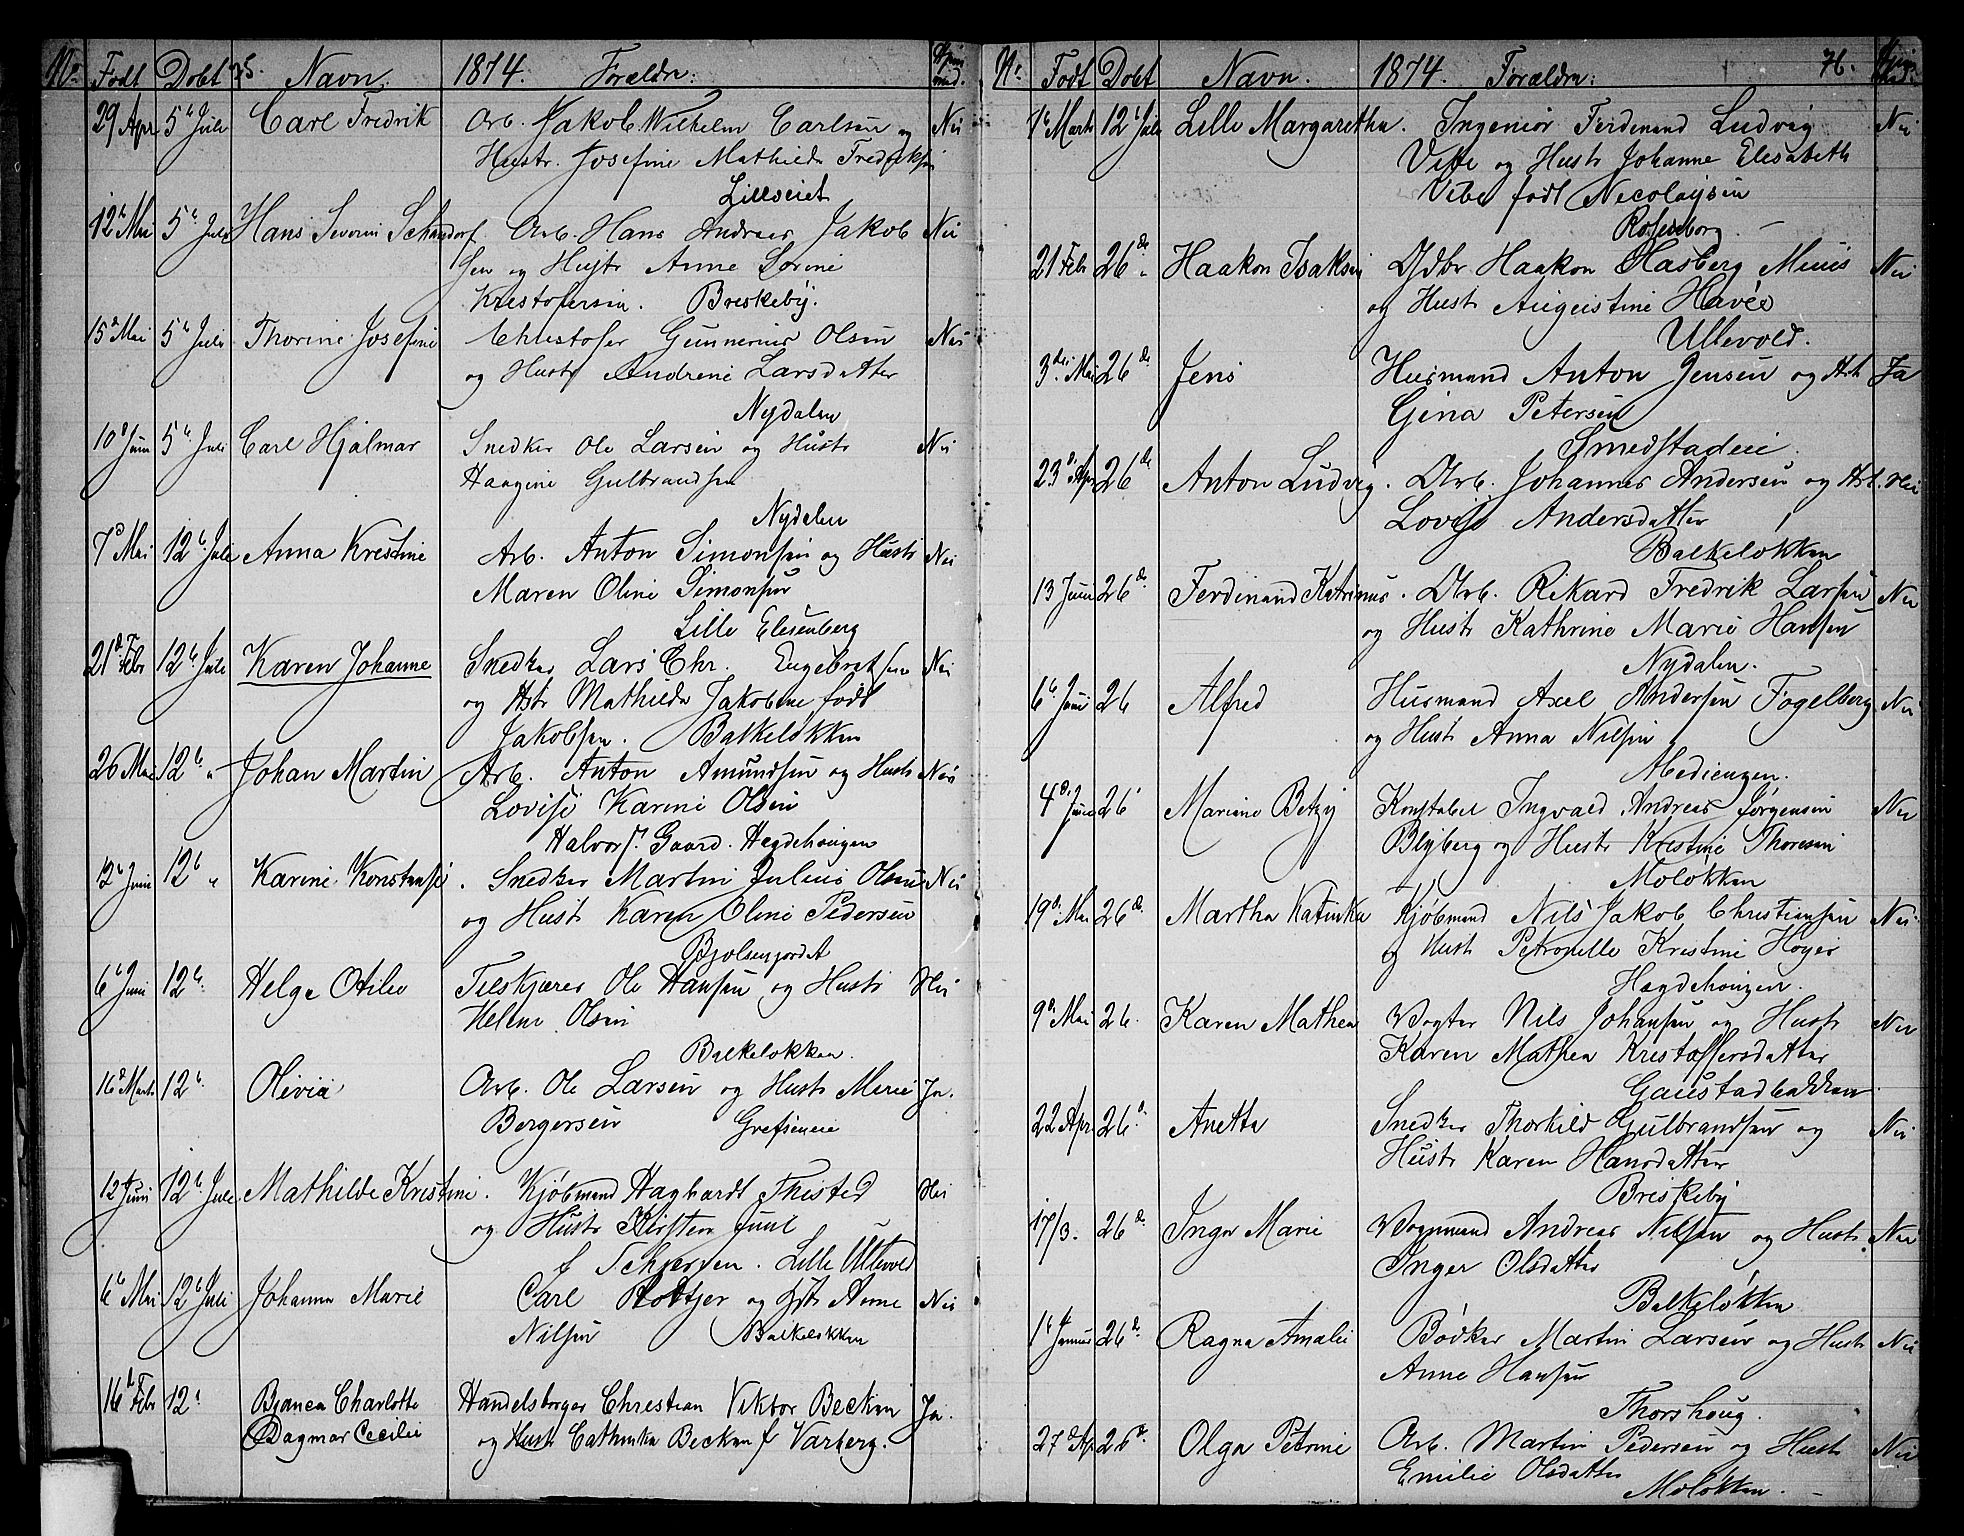 No Født Døbt 75. Navn. 1874. Forældre:
29 Apr 5te Juli Carl Fredrik Arb. Jakob Wilhelm Carlsen og Nei
Hustr. Josefine Mathilde Fredriksen
Lillseiet
12te Mai 5te Juli Hans Severin Schandorf Arb. Hans Andreas Jakob Nei
sen og Hustr Anne Lovine
Kristofersen. Briskeby.
15de Mai 5te Juli Thorine Josefine Christofer Gunnerius Olsen Nei
og Hustr Andrine Larsdatter
Nydalen
10de Juni 5te Juli Carl Hjalmar Snedker Ole Larsen og Hustr Nei
Haagine Gulbrandsen
Nydalen
7de Mai 12te Juli Anna Krestine Arb. Anton Simonsen og Hustr Nei
Maren Oline Simonsen
Lille Elesenberg
21de Febr 12te Juli Karen Johanne Snedker Lars Chr. Engebretsen Nei
og Hstr Mathilde Jakobine født
Jakobsen. Balkeløkken
26 Mai 12te " Johan Martin Arb. Anton Amundsen og Hustr Nei
Lovise Karine Olsen
Halvors. Gaard. Hegdehougen
12te Juni 12te " Karine Konstanse. Snedker Martin Julius Olsen Nei
og Hustr Karen Oline Pedersen
Bjølsenjordet
6te Juni 12te Helga Otilie Filskjærer Ole Hansen og Hustr Nei
Helene Olsen
Balkeløkken.
16de Marts 12te Olivia Arb. Ole Larsen og Hustr Marie Ja.
Bergersen Grefseneie
12 Juni 12te Juli Mathilde Kristine. Kjøbmand Haghardt Thisted Nei
og Hustr Kirsten Juul
f Lille Ullevold
6te Mai 12te Juli Johanna Marie Carl Røttjer og Hstr Anne Nei
Nilsen Balkeløkken
16de Febr 12te Bjanca Charlotte Handelsborger Christian Viktor Becken Ja.
Dagmar Cecilie og Hustr Cathinka Becken f Varberg.
No Født Døbt Navn. 1874. Forældre: 76.
1te Marts 12te Juli Lille Margaretha. Ingeniør Ferdinand Ludvig Nei
Vibe og Hustr Johanne Elisabeth
Vibe født Nicolaysen
Rosenborg. —
21 Febr 26de Haakon Isaksen Gdbr Haakon Hasberg Muus Nei
og Hustr Augustine Havée
Ullevold.
3die Mai 26de Jens Husmand Anton Jensen og Hstr Ja
Gina Petersen
Smedstadeie.
23de Apr 26de Anton Ludvig. Arb. Johannes Andersen og Hst. Nei
Lovise Andersdatter
Balkeløkken
13 Juni 26de Ferdinand Katrinus. Arb. Rikard Fredrik Larsen Nei
og Hustr Kathrine Marie Hansen
Nydalen.
6te Juni 26 Alfred Husmand Axel Andersen Fogelberg Nei
og Hustr Anna Nilsen
Abediengen.
4de Juni 26 Mariane Betzy Konstabel Ingvald Andreas Jørgensen Nei
Blyberg og Hustr Kristine Thoresen
Moløkken
19de Mai 26de Martha Katinka Kjøbmand Nils Jakob Christiansen Nei
og Hustr Petronelle Kristine Høyer
Hægdehougen.
9de Mai 26. Karen Mathea Vogter Nils Johansen og Hustr Nei
Karen Mathea Kristoffersdatter
Gaustadbakken
22 Apr 26de Anetta Snedker Thorkild Gulbrandsen og Nei
Hustr Karen Hansdatter
Briskeby
17/3. 26de Inger Marie Vognmand Andreas Nilsen og Hustr. Nei
Inger Olsdatter
Balkeløkken
1te Januar 26de Ragna Amalie Bødker Martin Larsen og Hustr Nei
Anne Hansen
Thorshoug.
27de Apr 26de Olga Petrine Arb. Martin Pedersen og Hustr Nei
Emilie Olsdatter
Moløkken. —